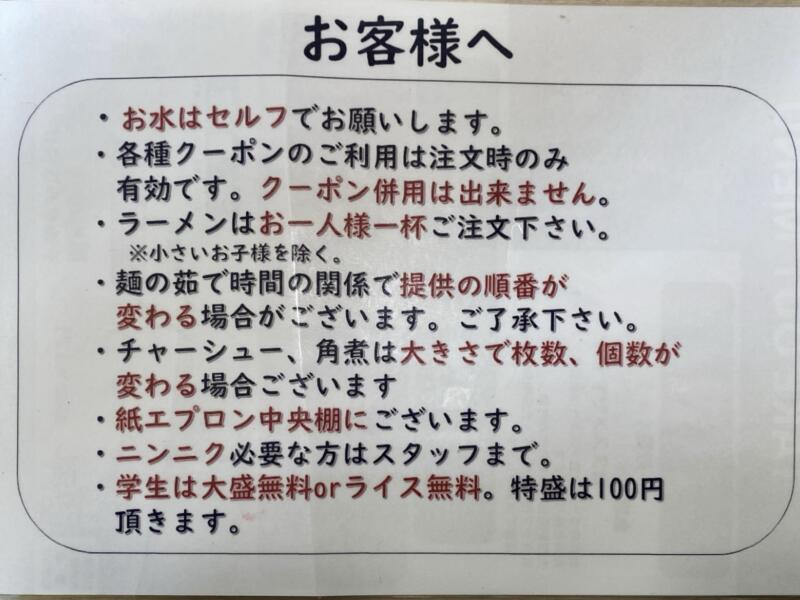 お客様へ
・お水はセルフでお願いします。
・各種クーポンのご利用は注文時のみ
有効です。クーポン併用は出来ません。
・ラーメンはお一人様一杯ご注文下さい。
※小さいお子様を除く。
・麺の茹で時間の関係で提供の順番が
変わる場合がございます。ご了承下さい。
・チャーシュー、角煮は大きさで枚数、個数が
変わる場合ございます
・紙エプロン中央棚にございます。
・ニンニク必要な方はスタッフまで。
・学生は大盛無料orライス無料。特盛は100円
頂きます。